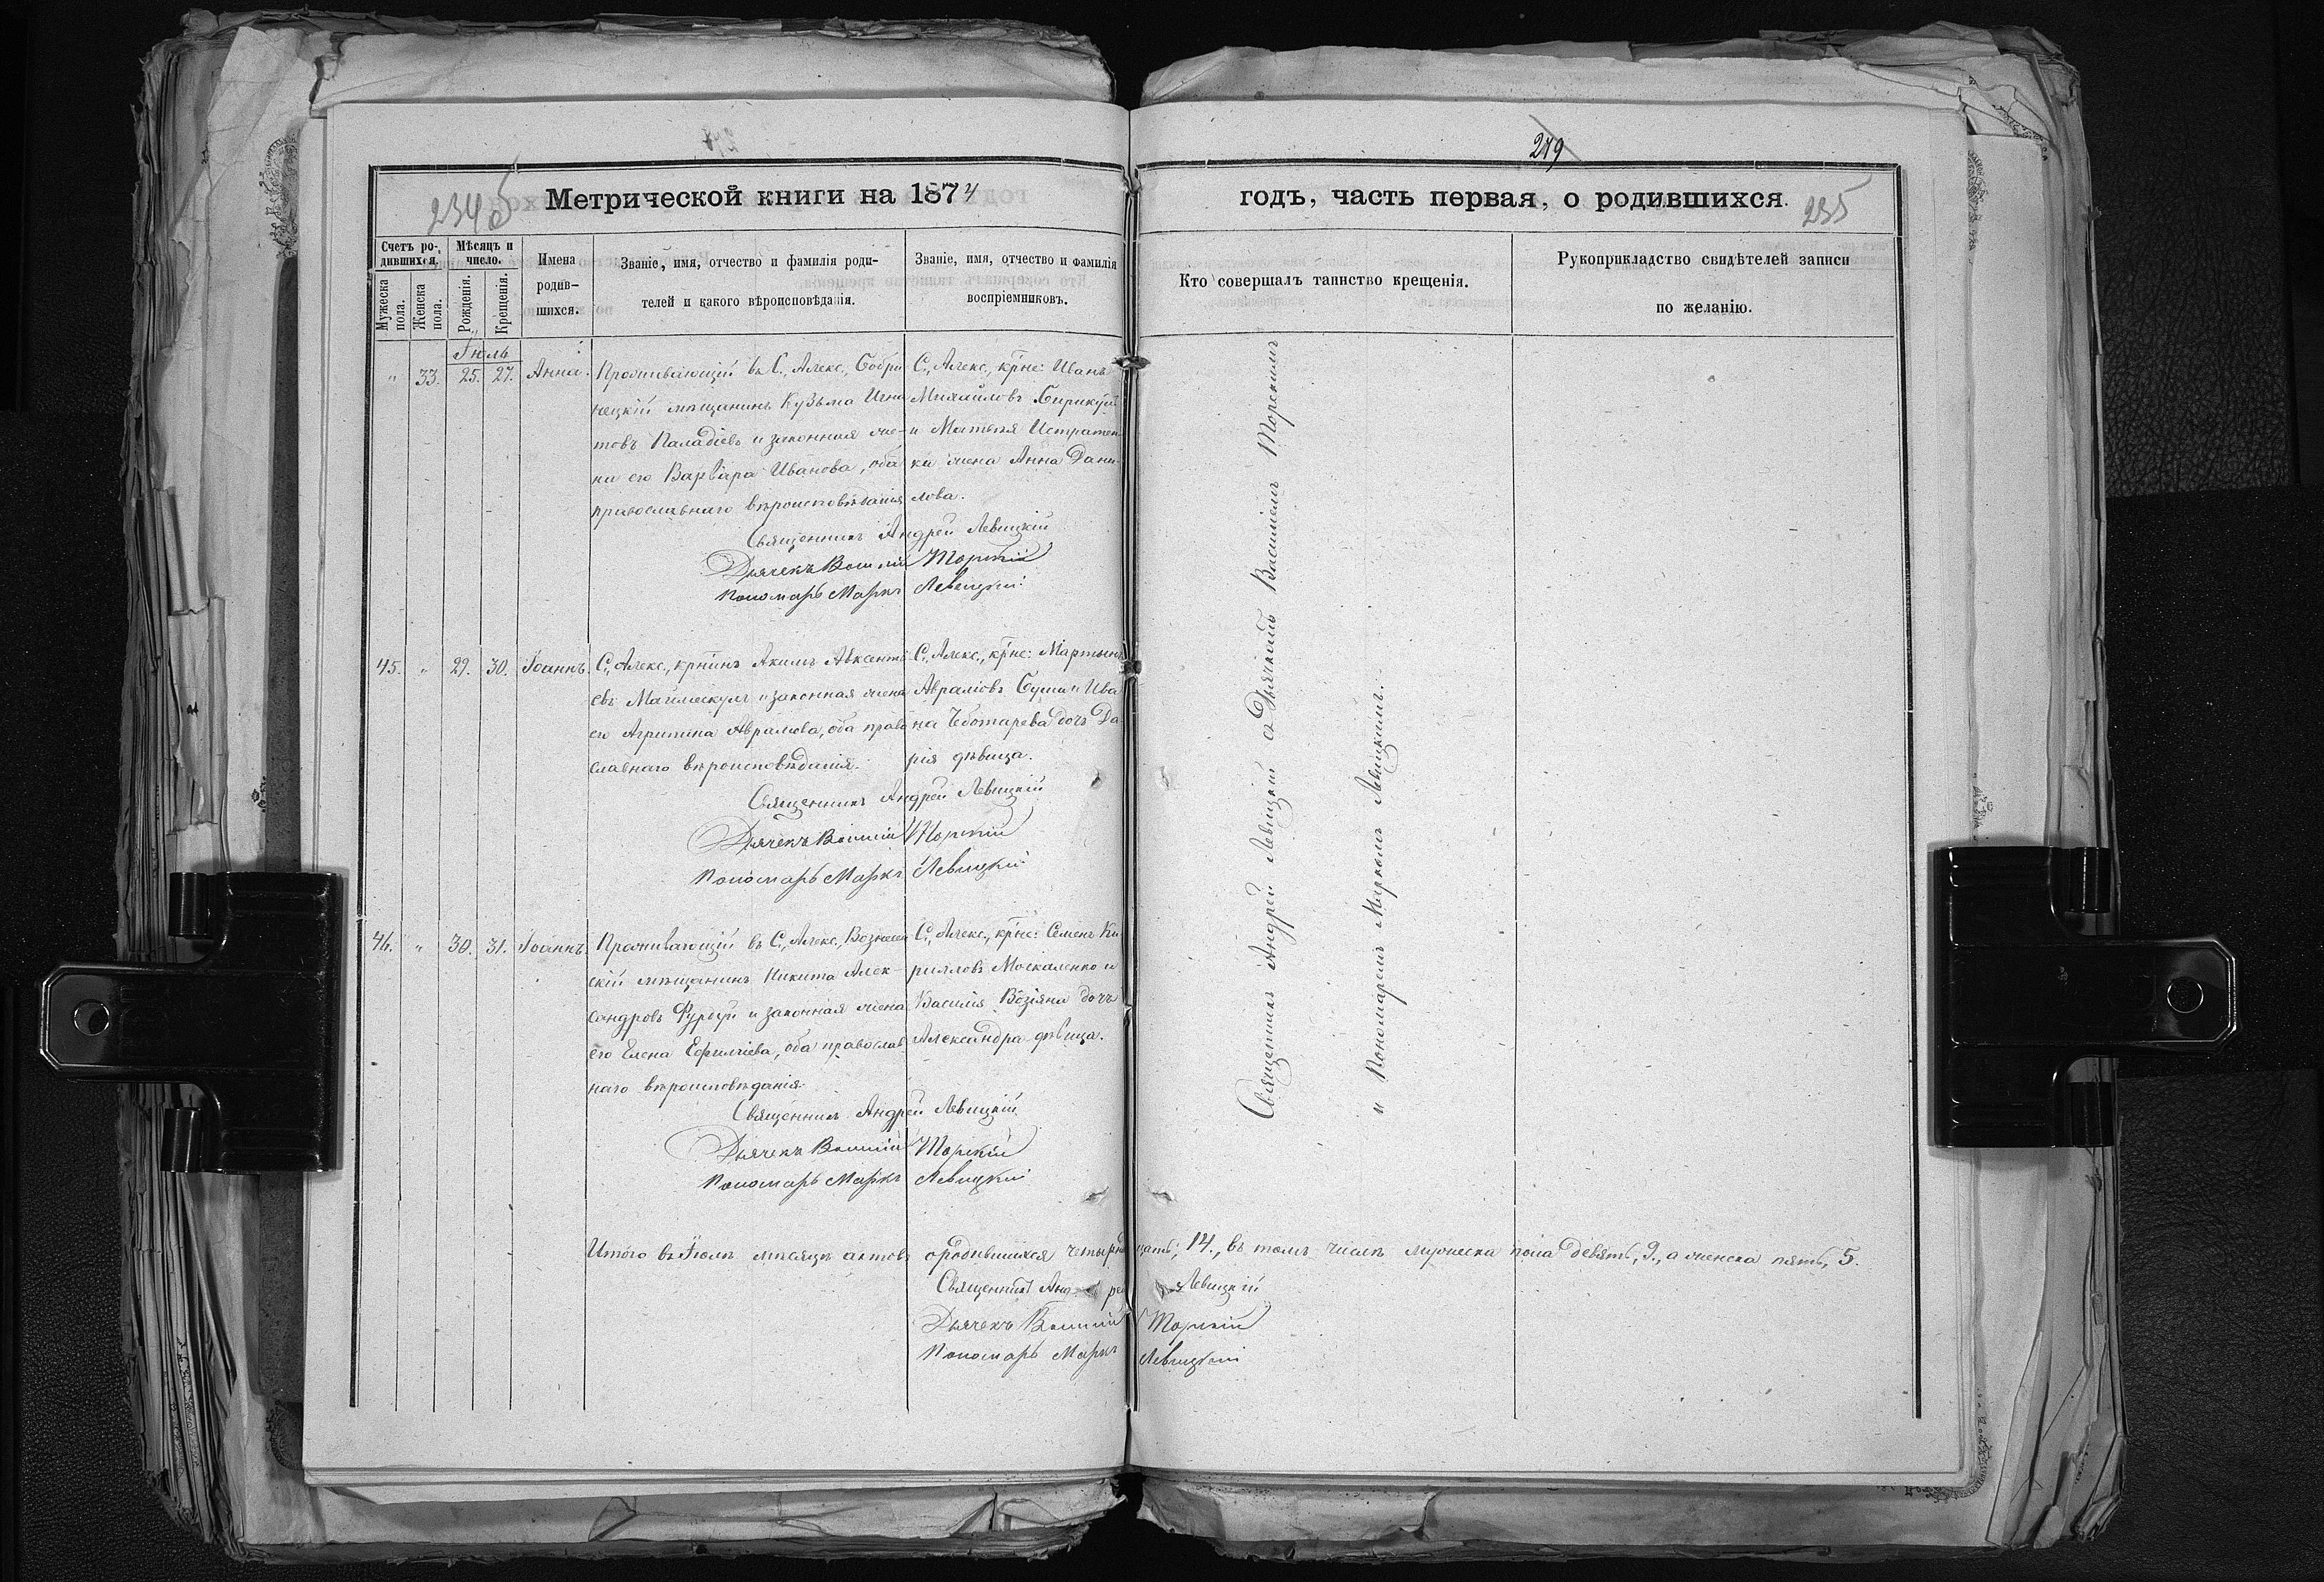 279
Метрической книги на 1874
годъ, часть первая, о родившихся.
235
Счетъ родившихся.
Мужеска пола.
Женска пола.
Мѣсяцъ и число.
Рожденія.
Крещенія.
Имена родившихся.
Званіе, имя, отчество и фамилія родителей и какого вѣроисповѣданія.
Званіе, имя, отчество и фамилія воспріемниковъ.
Кто совершалъ таинство крещенія.
Рукоприкладство свидѣтелей записи по желанію.
Іюль
" 33. 25. 27. Анна.
Проживающій въ С., Алекс., Бобри
нецкій мѣщанинъ Кузьма Игна
товъ Паладіевъ и законная же-
на его Варвара Иванова, оба
православнаго вѣроисповѣданія
С., Алекс., крне: Иванъ
Михайловъ
и Матвѣя Истратен
ки жена Анна Дани-
лова.
Священникъ Андрей Левицкій
Дьячекъ Василій Торскій
Пономарь Маркъ Левицкій
45. " 29. 30. Іоаннъ.
С., Алекс., крнинъ Акимъ Авксентi
евъ и законная жена
его Агрипина Авраамова, оба право
славнаго вѣроисповѣданія.
С., Алекс., крне: Мартынъ
Авраміовъ и Ива
на Чеботарева дочь Да
рія дѣвица.
Священникъ Андрей Левицкій
Дьячекъ Василій Торскій
Пономарь Маркъ Левицкій
46. " 30. 31. Іоаннъ.
Проживающій въ С., Алекс., Вознесен
скій мѣщанинъ Никита Алек-
сандровъ и законная жена
его Елена Ефиміева, оба православ
наго вѣроисповѣданія.
С., Алекс., крне: Семенъ Ки
рилловъ Москаленко и
Василія Возіяна дочь
Александра дѣвица.
Священникъ Андрей Левицкій
Дьячекъ Василій Торскій
Пономарь Маркъ Левицкій
Священникъ Андрей Левицкій съ Дьячкомъ Василіемъ Торскимъ
и Пономаремъ Маркомъ Левицкимъ.
Итого въ Іюлѣ мѣсяцѣ актовъ о родившихся четырнадцать, 14., въ томъ числѣ мужеска пола девять, 9., а женска пять, 5.
Священникъ Андрей Левицкій
Дьячекъ Василій Торскій
Пономарь Маркъ Левицкій